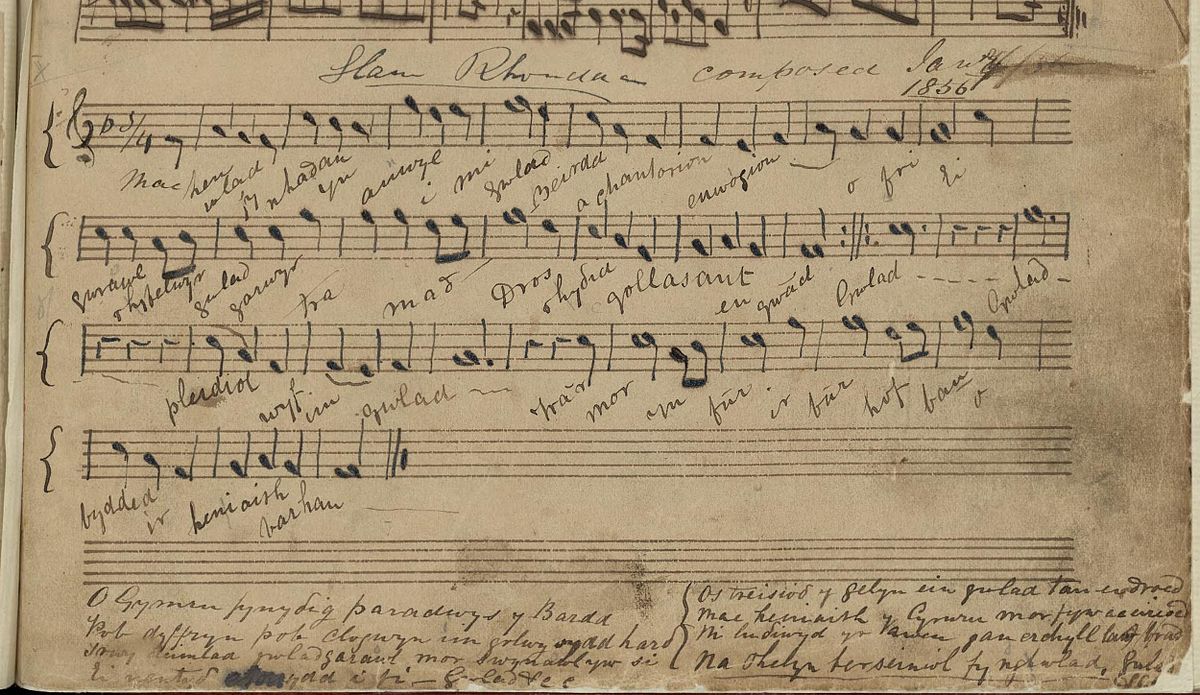 Glan Rhondda composed Jan
1856
Mae hen wlad fy nhadau yn anwyl i mi gwlad Beirdd a chantorion enwogion o fri Ei
gwrawl rhyfelwyr gwlad garwyr tra mad Dros rhydid gollasant eu gwâd Gwlad Gwlad
pleidiol wyf im gwlad tra mor yn fur ir bur hof bau o
bydded ir heniaith barhau
O Gymru fynydig paradwys y Bardd
Pob dyffryn pob clogwyn im golwg sydd hard
Trwy deimlad gwladgarawl mor swynawl yw si
Ei nentydd i fi — Gwlad &c
Os treisiod y gelyn ein gwlad tan ei droed
Mae heniaith y Cymru mor fyw ac erioed
Ni ludiwyd yr Awen gan erchyll law brad
Na thelyn berseiniol fy nghwlad,